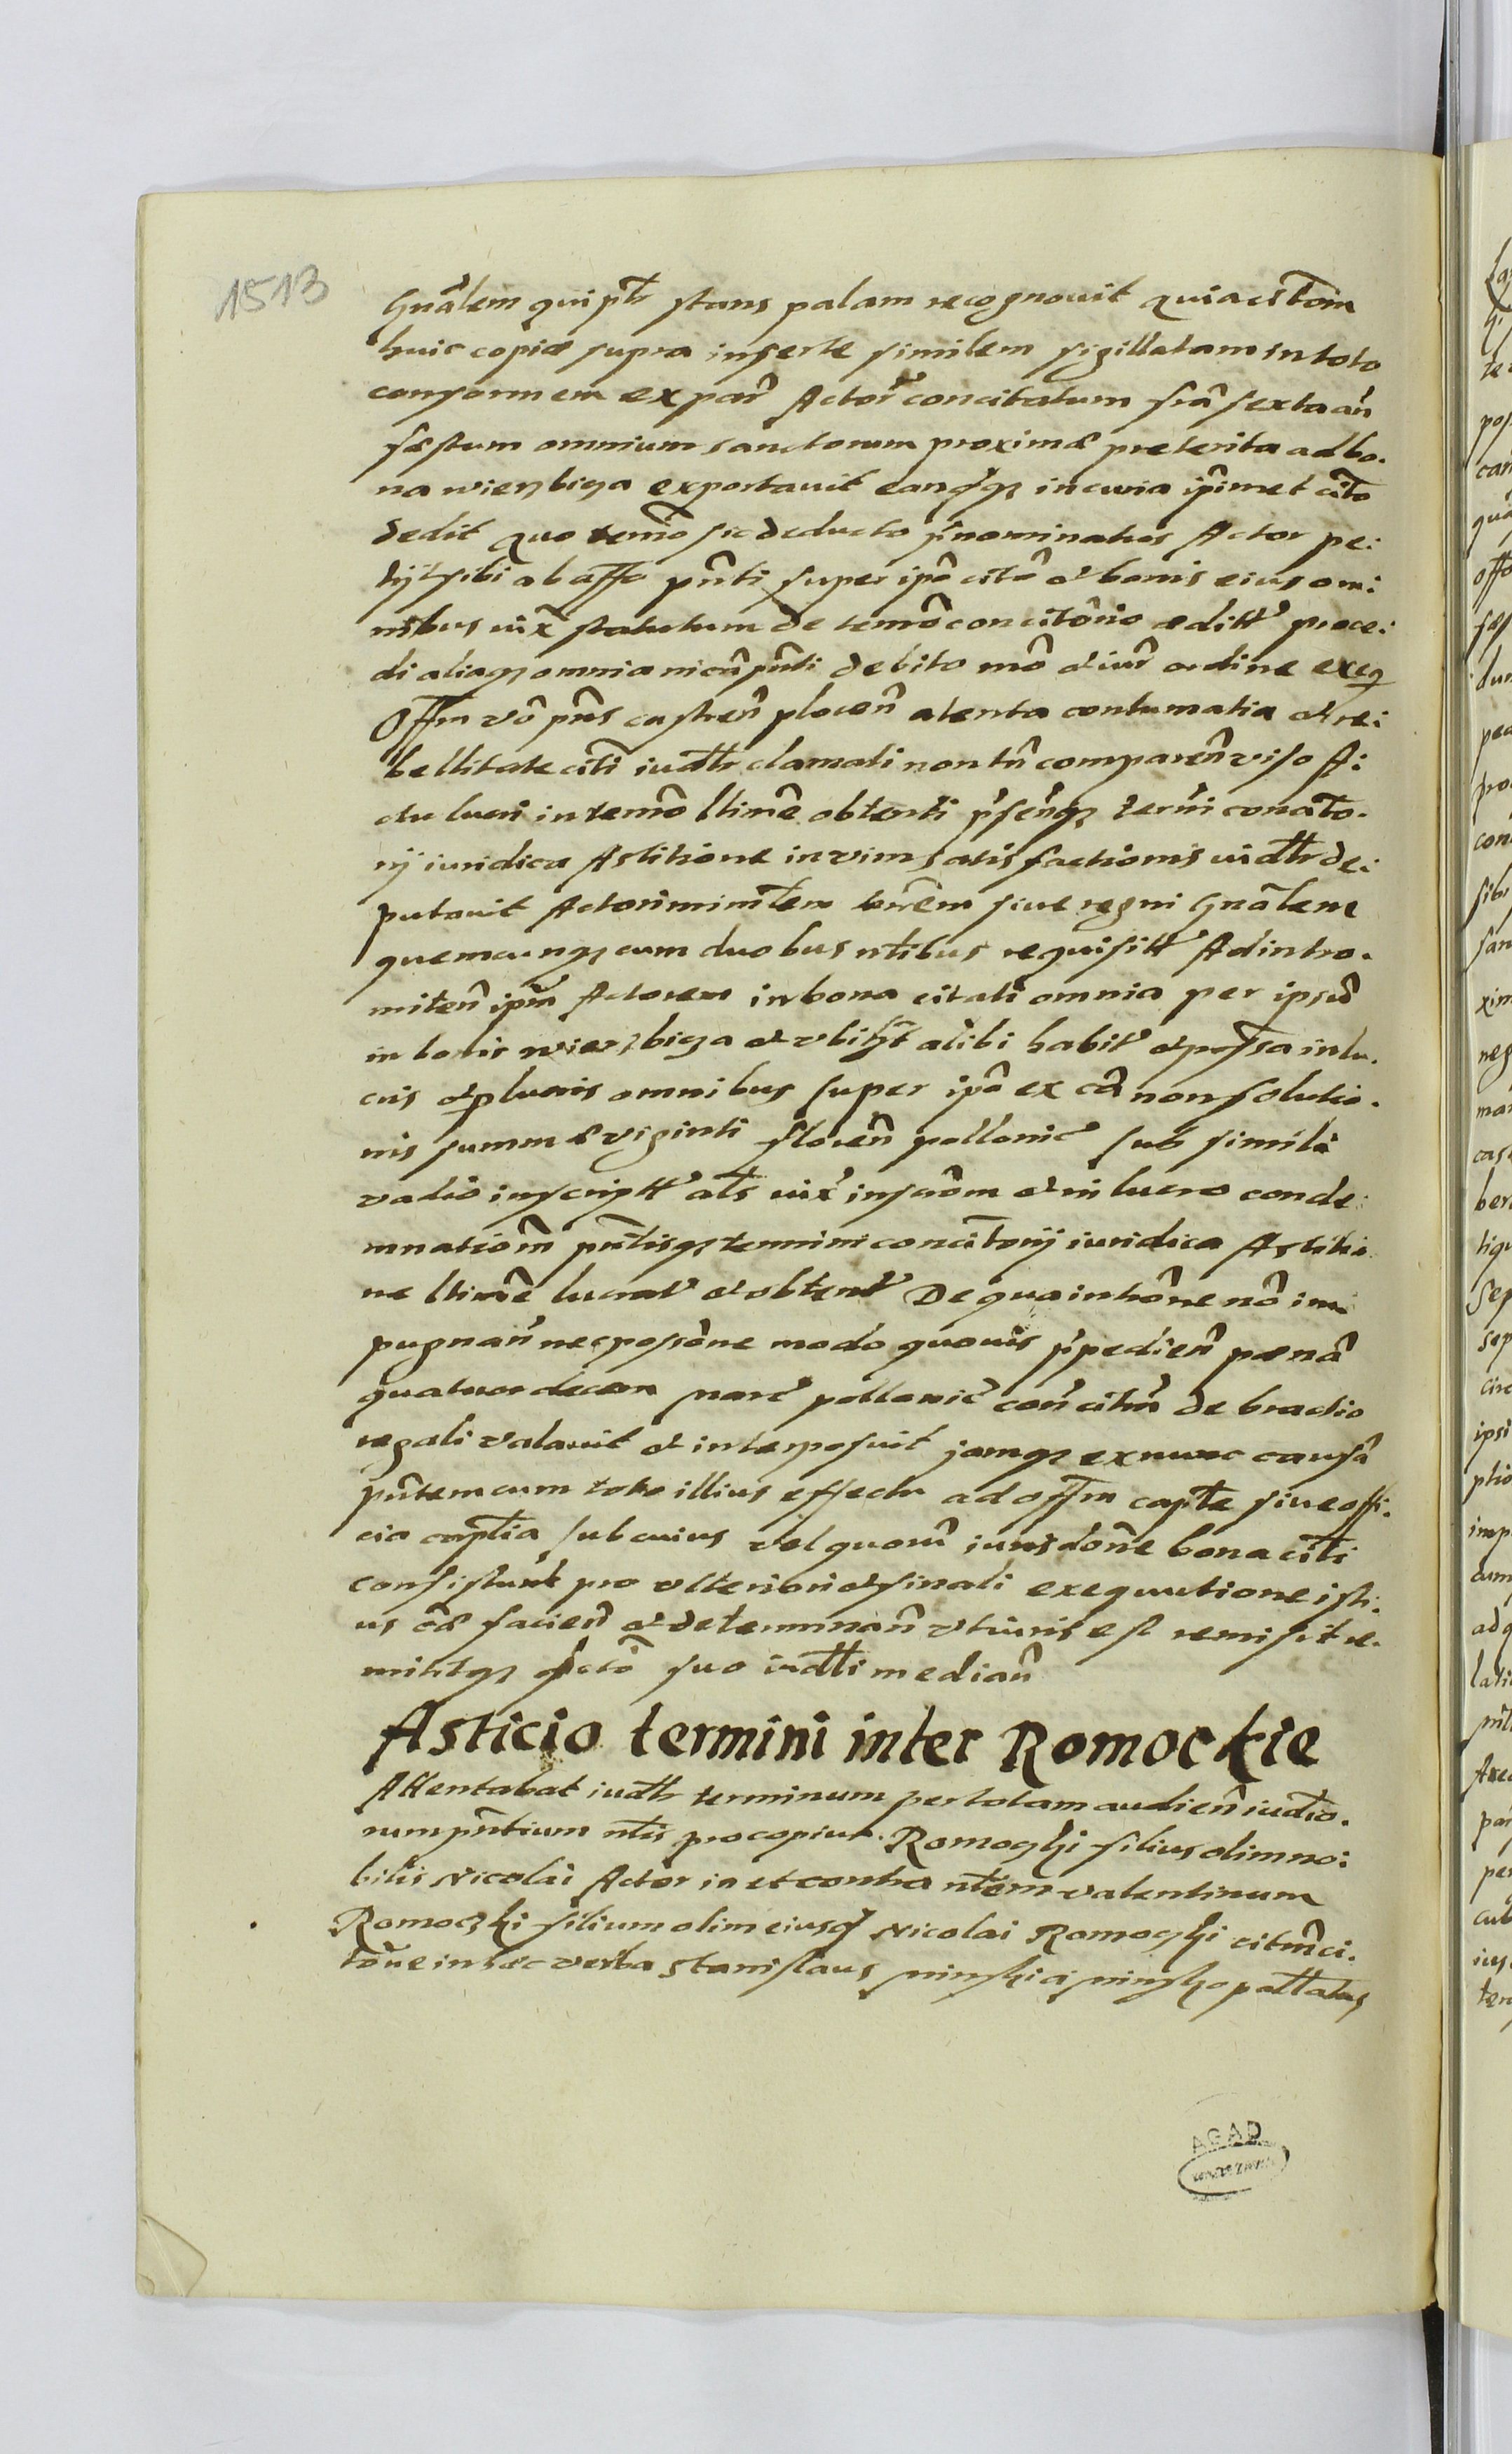 1513
Gnãlem qui ptr stans palam recognouit quia citõm
huic copiæ supra inserte similem sigillatam in toto
conformem ex par Actor concitatum fria sexta añ
festum omnium sanctorum proximæ preterita ad bo.
na wierzbiza exportauit eandqz in curia ipimet cito
dedit quo termio sic deducto p̃nominatus Actor pe:
tyt sibi ab offo pñti super ipo cito et bonis eius om:
nibus iux statutum de termo concitõrio æditt proce:
di aliaqz omnia pñti debito mõ et iur ordine exeq
Offm vo pñs castreñ ploceñ atenta contumatia et re:
bellitate citi iudtr clamati non tñ compareñ viso A:
ctu lucri in termo ltime obtenti termi concito.
rij iuridica Astitione in vim satisfactionis iudtr de:
putauit Actori minrlem siue regni Gnãlem
quemcunqz cum duobus nlibus requisitt Ad intro.
mitteñ ipm Actorem in bona citati omnia per ipsũ
in bonis wierzbiza et vbilt alibi habit et possa in lu.
cris et omnibus super ipo ex cã non solutio.
nis summæ viginti floreñ pollonic sub simili
vadio inscriptt als iux inscrõm et in lucro conde:
mnatiom pñtisqz termini concitorij iuridica Astitio
ne ltime lucrat et obtent De qua introne nõ im
pugnañ nec possone modo quouis p̃pedieñ pænã
quatuordecem marc pollonic de bractio
regali valauit et interposuit jamqz ex nunc causã
pñtem cum toto illius effectu ad offm captle siue offi.
cia captlia sub cuius vel quorũ iurisdone bona citi
consistunt pro vlteriori et finali exequutione isti.
us cæ facieñ et determinañ vt iuris est remisit re.
mittitqz suo iudtli mediañ
Asticio termini inter Romockie
Attentabat iudtr terminum per totam audieñ iudtio.
rum pñtium nlis procopius Romoczki filius olim no:
bilis Nicolai Actor in et contra nlem valentinum
Romoczki filium olim eiusd Nicolai Romoczki citm ci.
tone in hæc verba Stanislaus minski pallatus
AGAD